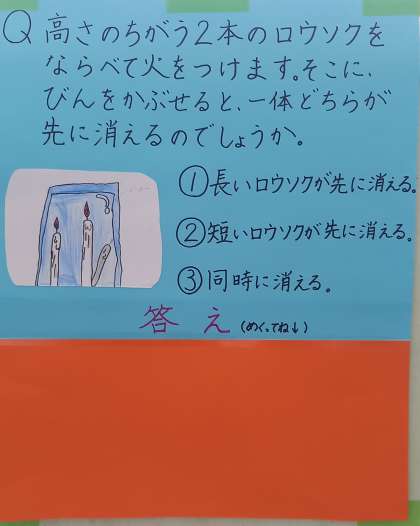 Q 高さのちがう2本のロウソクを
ならべて火をつけます。そこに、
びんをかぶせると、一体どちらが
先に消えるのでしょうか。
①長いロウソクが先に消える。
②短いロウソクが先に消える。
③同時に消える。
答え(めくってね↓)